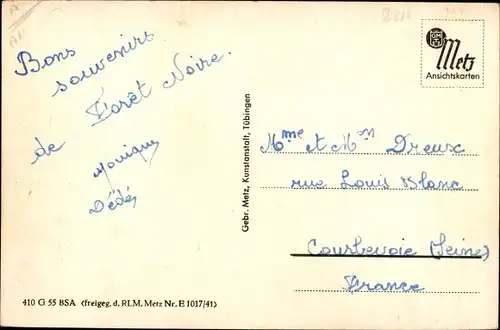 Bons
souvenirs
de Forêt Noire.
Monique
Dédé
Metz
Ansichtskarten
Gebr. Metz, Kunstanstalt, Tübingen
Mme et Mon Dreux
rue Louis Blanc
Courbevoie (Seine)
France
410 G 55 BSA (freigeg. d. RLM. Metz Nr. E 1017/41)